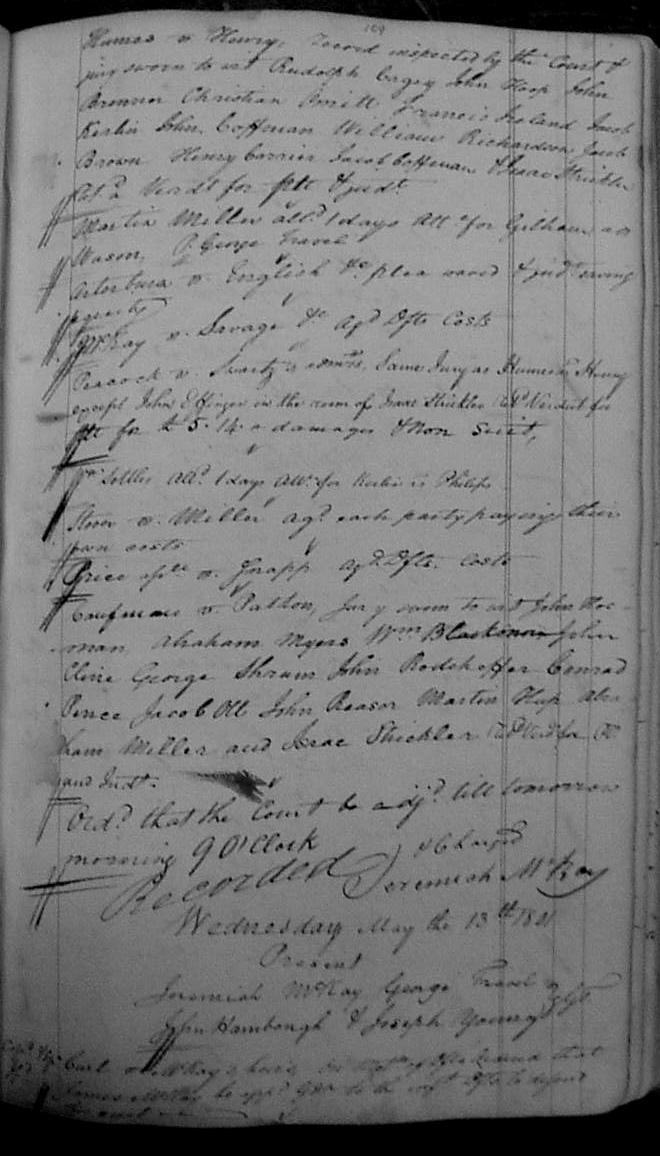 169
Humes v Henry, record inspected by the Court &
jury sworn to wit Rudolph John Hoop John
Brennor Christian Francis Ireland Jacob
Kerlin John Coffman William Richardson Jacob
Brown Henry Carrier Jacob Coffman & Isaac Strickler
Ret.d Verdt for plt & judt
Martin Miller attd 1 days Att.e for Gilham vs
Mason, P. George Travel
Arterburn v English &c plea waved & judt saving
equity
McKay v. Savage &c agd Dfts Costs
Peacock v. Swartz's Same Jury as Humes v Henry
except John Effinger in the room of Isaac Strickler Retd Verdict for
plt for £ 5. 14. 0 damages & Non Suit,
Wm Settles Attd 1 days Atte for Kerlin vs Philips
Stover v. Miller agd each party paying their
own costs
Price v. Knapp agd Dfts. Costs
Coufman v. Patton, Jury sworn to wit John Hoc-
man Abraham Myers Wm Blackmore John
Cline George Shrum John Rodehoffer Conrad
Pence Jacob Ott John Reasor Martin Hup Abra
ham Miller and Isaac Strickler Retd Verdt for
and Judt.
Ordd that the Court be adjd till tomorrow
morning 9 O'Clock
& Charged
Recorded Jeremiah McKay
Wednesday May the 13th 1801
Present
Jeremiah McKay George Travel
John Hambough & Joseph Young Gt
McKay's that
James McKay be appd to the Dfts to defend